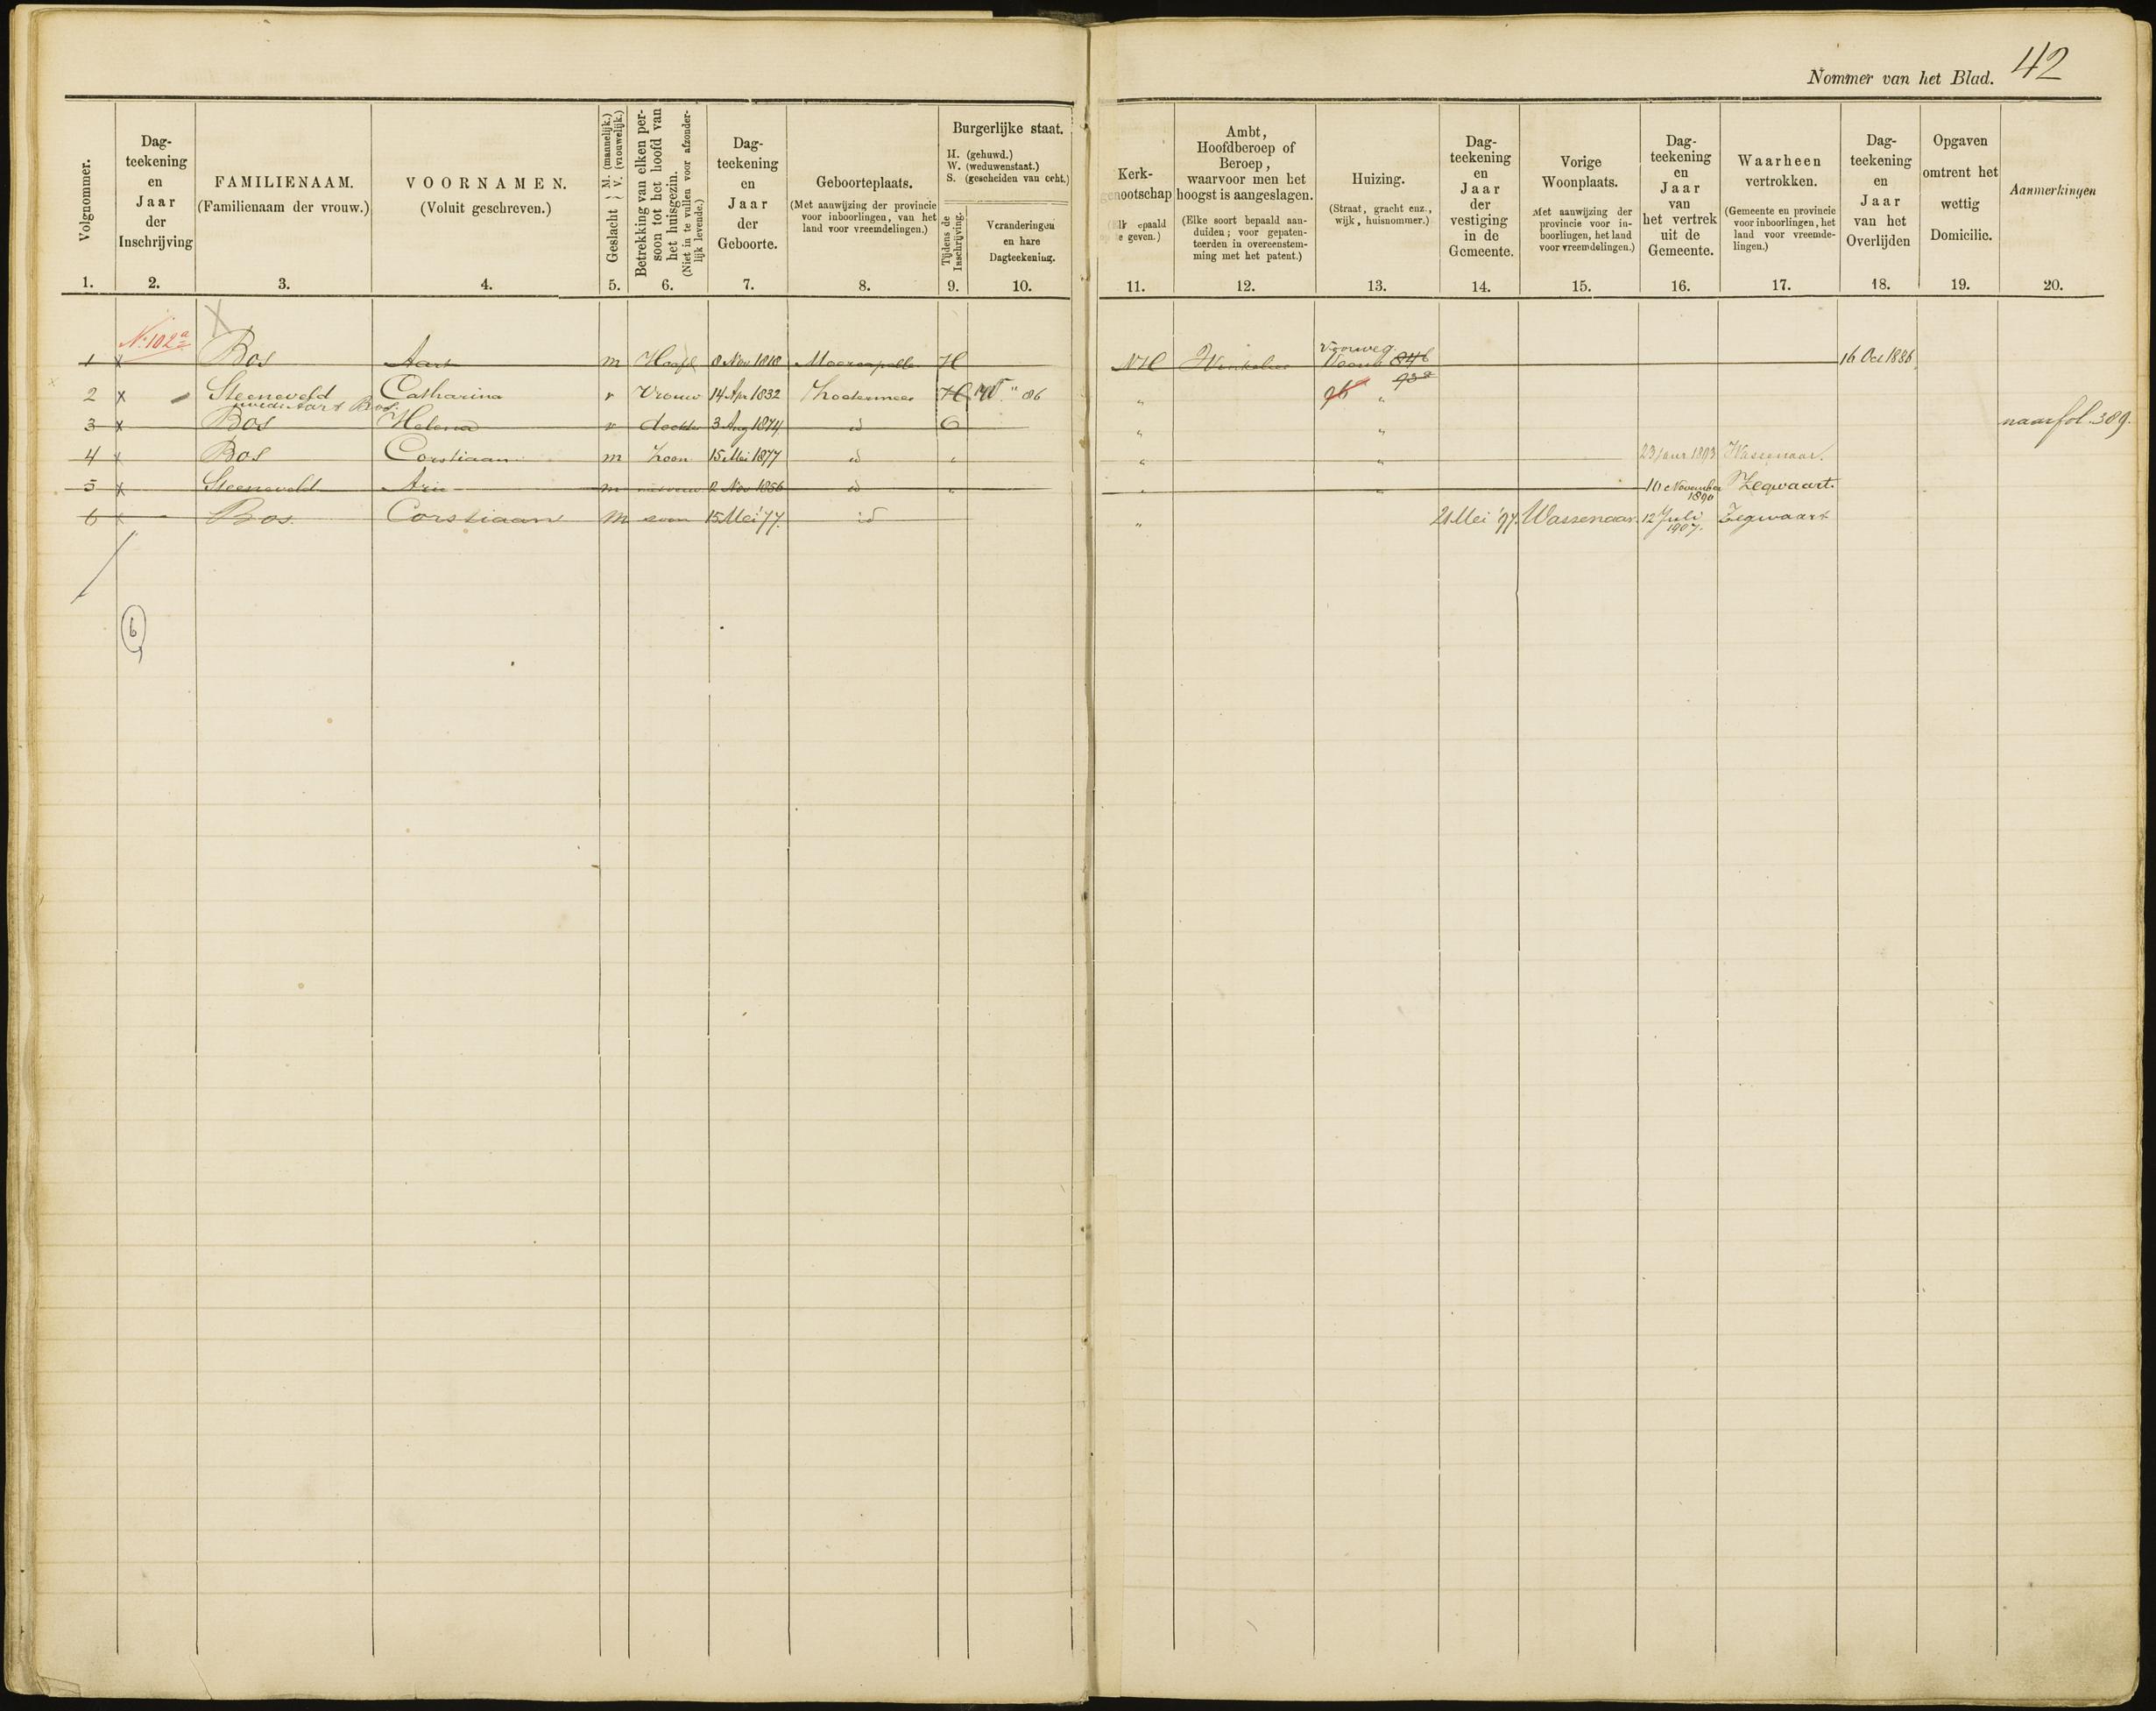 Nommer van het Blad. 42
Volgnommer.
1.
Dag-
teekening
en
Jaar
der
Inschrijving
2.
FAMILIENAAM.
(Familienaam der vrouw.)
3.
VOORNAMEN.
(Voluit geschreven.)
4.
Geslacht { M. (mannelijk.) V. (vrouwelijk.)
5.
Betrekking van elken per-
soon tot het hoofd van
het huisgezin.
(Niet in te vullen voor afzonder-
lijk levende.)
6.
Dag-
teekening
en
Jaar
der
Geboorte.
7.
Geboorteplaats.
(Met aanwijzing der provincie
voor inboorlingen, van het
land voor vreemdelingen.)
8.
Burgerlijke staat.
H. (gehuwd.)
W. (weduwenstaat.)
S. (gescheiden van echt.)
Tijdens de
Inschrijving.
9.
Veranderingen
en hare
Dagteekening.
10.
Kerk-
genootschap
epaald
te geven.)
11.
Ambt,
Hoofdberoep of
Beroep,
waarvoor men het
hoogst is aangeslagen.
(Elke soort bepaald aan-
duiden; voor gepaten-
teerden in overeenstem-
ming met het patent.)
12.
Huizing.
(Straat, gracht enz.,
wijk, huisnommer.)
13.
Dag-
teekening
en
Jaar
der
vestiging
in de
Gemeente.
14.
Vorige
Woonplaats.
Met aanwijzing der
provincie voor in-
boorlingen, het land
voor vreemdelingen.)
15.
Dag-
teekening
en
Jaar
van
het vertrek
uit de
Gemeente.
16.
Waarheen
vertrokken.
(Gemeente en provincie
voor inboorlingen, het
land voor vreemde-
lingen.)
17.
Dag-
teekening
en
Jaar
van het
Overlijden
18.
Opgaven
omtrent het
wettig
Domicilie.
19.
Aanmerkingen
20.
No. 102a
Voorweg
1 x Bos Aart m Hoofd 8 Nov 1818 Moercapelle H NH Winkelier 84b 16 Oct 1886
93a
2 x Steeneveld Catharina v Vrouw 14 Apr 1832 Zoetermeer H W " 86 " 96 "
wede Aart Bos.
3 x Bos Helena v dochter 3 Aug 1874 id O " " naar fol. 389.
4 x Bos Corstiaan m Zoon 15 Mei 1877 id " " " 23 Janr 1893 Wassenaar.
5 x Steeneveld Arie m 2 Nov 1856 id " " " 10 November 1890 Zegwaart.
6 x Bos. Corstiaan M zoon 15 Mei '77. id " 21 Mei '97. Wassenaar. 12 Juli 1907. Zegwaart
6